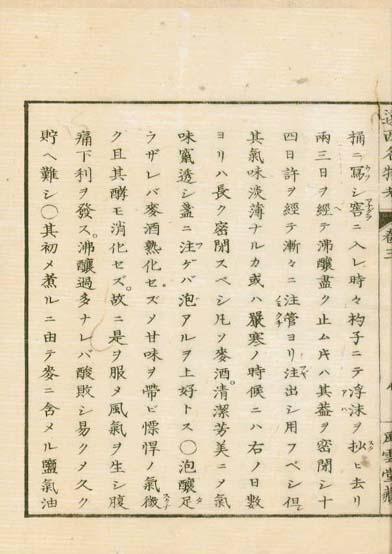 遠西名物考 卷三 風雲堂藏
桶ニ寫シ窖ニ入レ時々杓子ニテ浮沫ヲ抄ヒ去リ
兩三日ヲ經テ沸釀盡ク止ムトキハ其葢ヲ密閉シ十
四日許ヲ經テ漸々ニ注管ヨリ注出シ用フベシ但
其氣味淡薄ナルカ或ハ嚴寒ノ時候ニハ右ノ日數
ヨリハ長ク密閉スベシ凡ソ麥酒。清潔芳美ニメ氣
味竄透シ盞ニ注ゲバ泡アルヲ上好トス○泡釀足
ラザレバ麥酒熟化セズメ甘味ヲ帶ビ慓悍ノ氣微
ク且其酵モ消化セズ。故ニ是ヲ服メ風氣ヲ生シ腹
痛下利ヲ發ス。沸釀過多ナレバ酸敗シ易クメ久ク
貯ヘ難シ○其初メ煮ルニ由テ麥ニ含メル鹽氣油